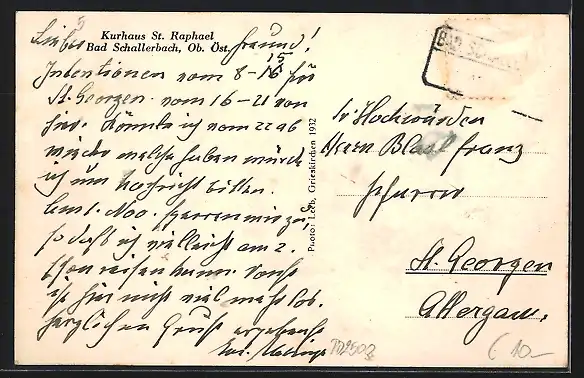 Kurhaus St. Raphael
Bad Schallerbach, Ob. Öst.
Lieber Freund!
Intentionen vom 8-15 für
St. Georgen vom 16-21 von
hier. Könnte ich vom 22 ab
wieder welche haben würde
ich um Nachricht bitten.
Am 1. Nov.
so daß ich vielleicht am 2.
ist hier nicht viel mehr los.
Herzlichen Gruß
Photo: Leeb, Grieskirchen 1932
BAD SCHALL
Sr Hochwürden
Herrn Franz
Pfarrer
St. Georgen
Attergau.
TD2502
€ 10-